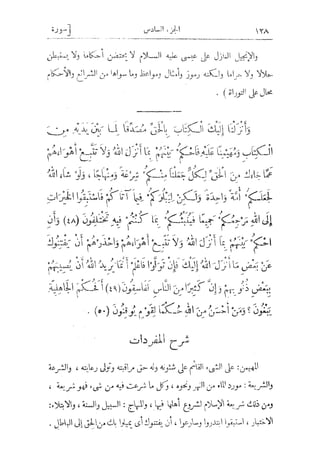 ١٢٨ الجزء السادس [سورة
والإنجيل النازل على عيسى عليه السلام لا يتضمن أحكاما ولا يستبطن
حلالا ولا حراما ولكنه رموز وأمثال ومواعظ وما سواها من الشرائع والأحكام
محال على التوراة ) .
وَأَنْزَلْنَا إِلَيْكَ الْكِتَابَ بِالْحَقِّ مُصَدِّقًا لِمَا بَيْنَ يَدَيْهِ مِنَ
الْكِتَابِ وَمُهَيْمِنًا عَلَيْهِ فَاحْكُمْ بَيْنَهُمْ بِمَا أَنْزَلَ اللهُ وَلَا تَتَّبِعْ أَهْوَاءَهُمْ
عَمَّا جَاءَكَ مِنَ الْحَقِّ لِكُلٍّ جَعَلْنَا مِنْكُمْ شِرْعَةً وَمِنْهَاجًا، وَلَوْ شَاءَ اللهُ
لَجَعَلَكُمْ أُمَّةً وَاحِدَةً وَلَكِنْ لِيَبْلُوَكُمْ فِيمَا آتَاكُمْ فَاسْتَبِقُوا الْخَيْرَاتِ
إِلَى اللهِ مَرْجِعُكُمْ جَمِيعًا فَيُنَبِّئُكُمْ بِمَا كُنْتُمْ فِيهِ تَخْتَلِفُونَ (٤٨) وَأَنِ
احْكُمْ بَيْنَهُمْ بِمَا أَنْزَلَ اللهُ وَلَا تَتَّبِعْ أَهْوَاءَهُمْ وَاحْذَرْهُمْ أَنْ يَفْتِنُوكَ
عَنْ بَعْضِ مَا أَنْزَلَ اللهُ إِلَيْكَ فَإِنْ تَوَلَّوْا فَاعْلَمْ أَنَّمَا يُرِيدُ اللهُ أَنْ يُصِيبَهُمْ
بِبَعْضِ ذُنُوبِهِمْ وَإِنَّ كَثِيرًا مِنَ النَّاسِ لَفَاسِقُونَ (٤٩) أَفَحُكْمَ الْجَاهِلِيَّةِ
يَبْغُونَ ؟ وَمَنْ أَحْسَنُ مِنَ اللهِ حُكْمًا لِقَوْمٍ يُوقِنُونَ (٥٠) .
شرح المفردات
المهيمن: على الشىء القائم على شئونه وله حق مراقبته وتولى رعايته ، والشرعة
والشريعة : مورد الماء من النهر ونحوه ، وكل ما شرعت فيه من شىء فهو شريعة ،
ومن ذلك شريعة الإسلام لشروع أهلها فيها ، والمنهاج : السبيل والسنة ، والابتلاء:
الاختبار ، استبقوا ابتدروا وسارعوا ، أن يفتنوك أى يميلوا بك من الحق إلى الباطل .